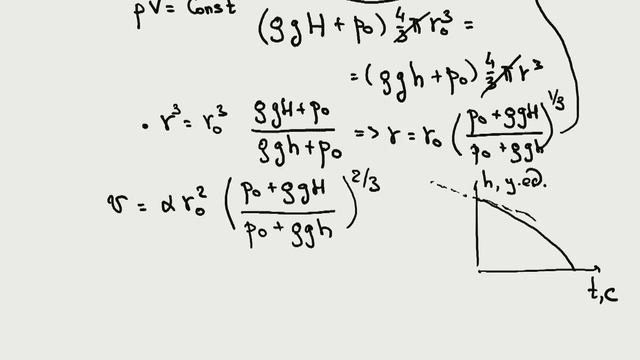 pV = Const
(ρgH + p₀) 4/3 π r₀³ =
= (ρgh + p₀) 4/3 π r³
• r³ = r₀³ (ρgH + p₀)/(ρgh + p₀) => r = r₀ ((p₀ + ρgH)/(p₀ + ρgh))^1/3
v = α r₀² ((p₀ + ρgH)/(p₀ + ρgh))^2/3
h, у.ед.
t, c